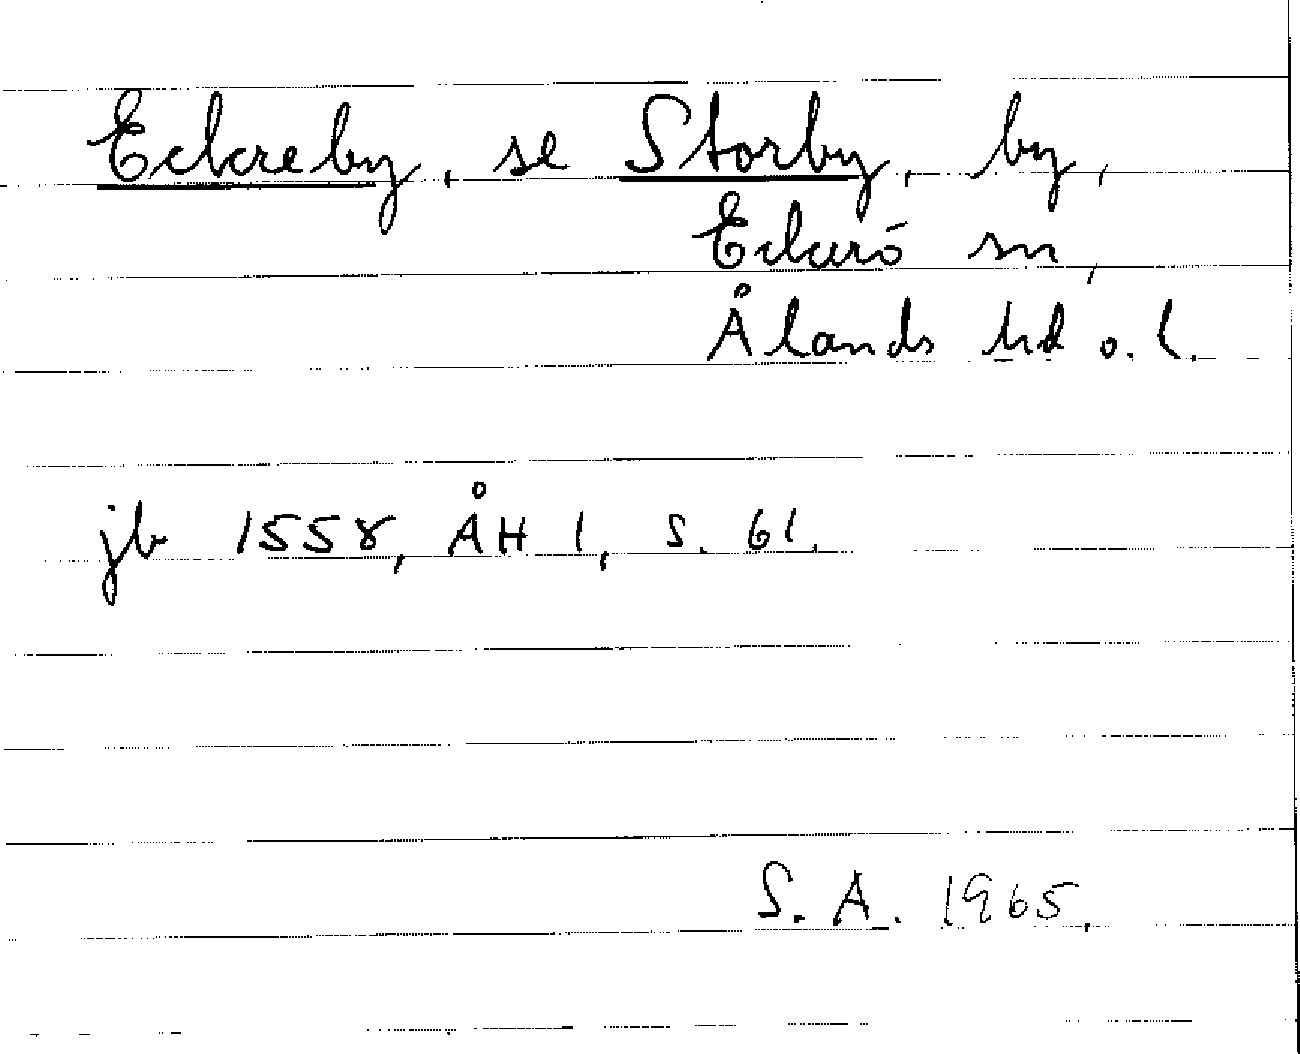 Eckreby, se Storby, by,
Eckerö sn,
Ålands hd o. l.
jb 1558, ÅH 1, s. 61.
S. A. 1965.